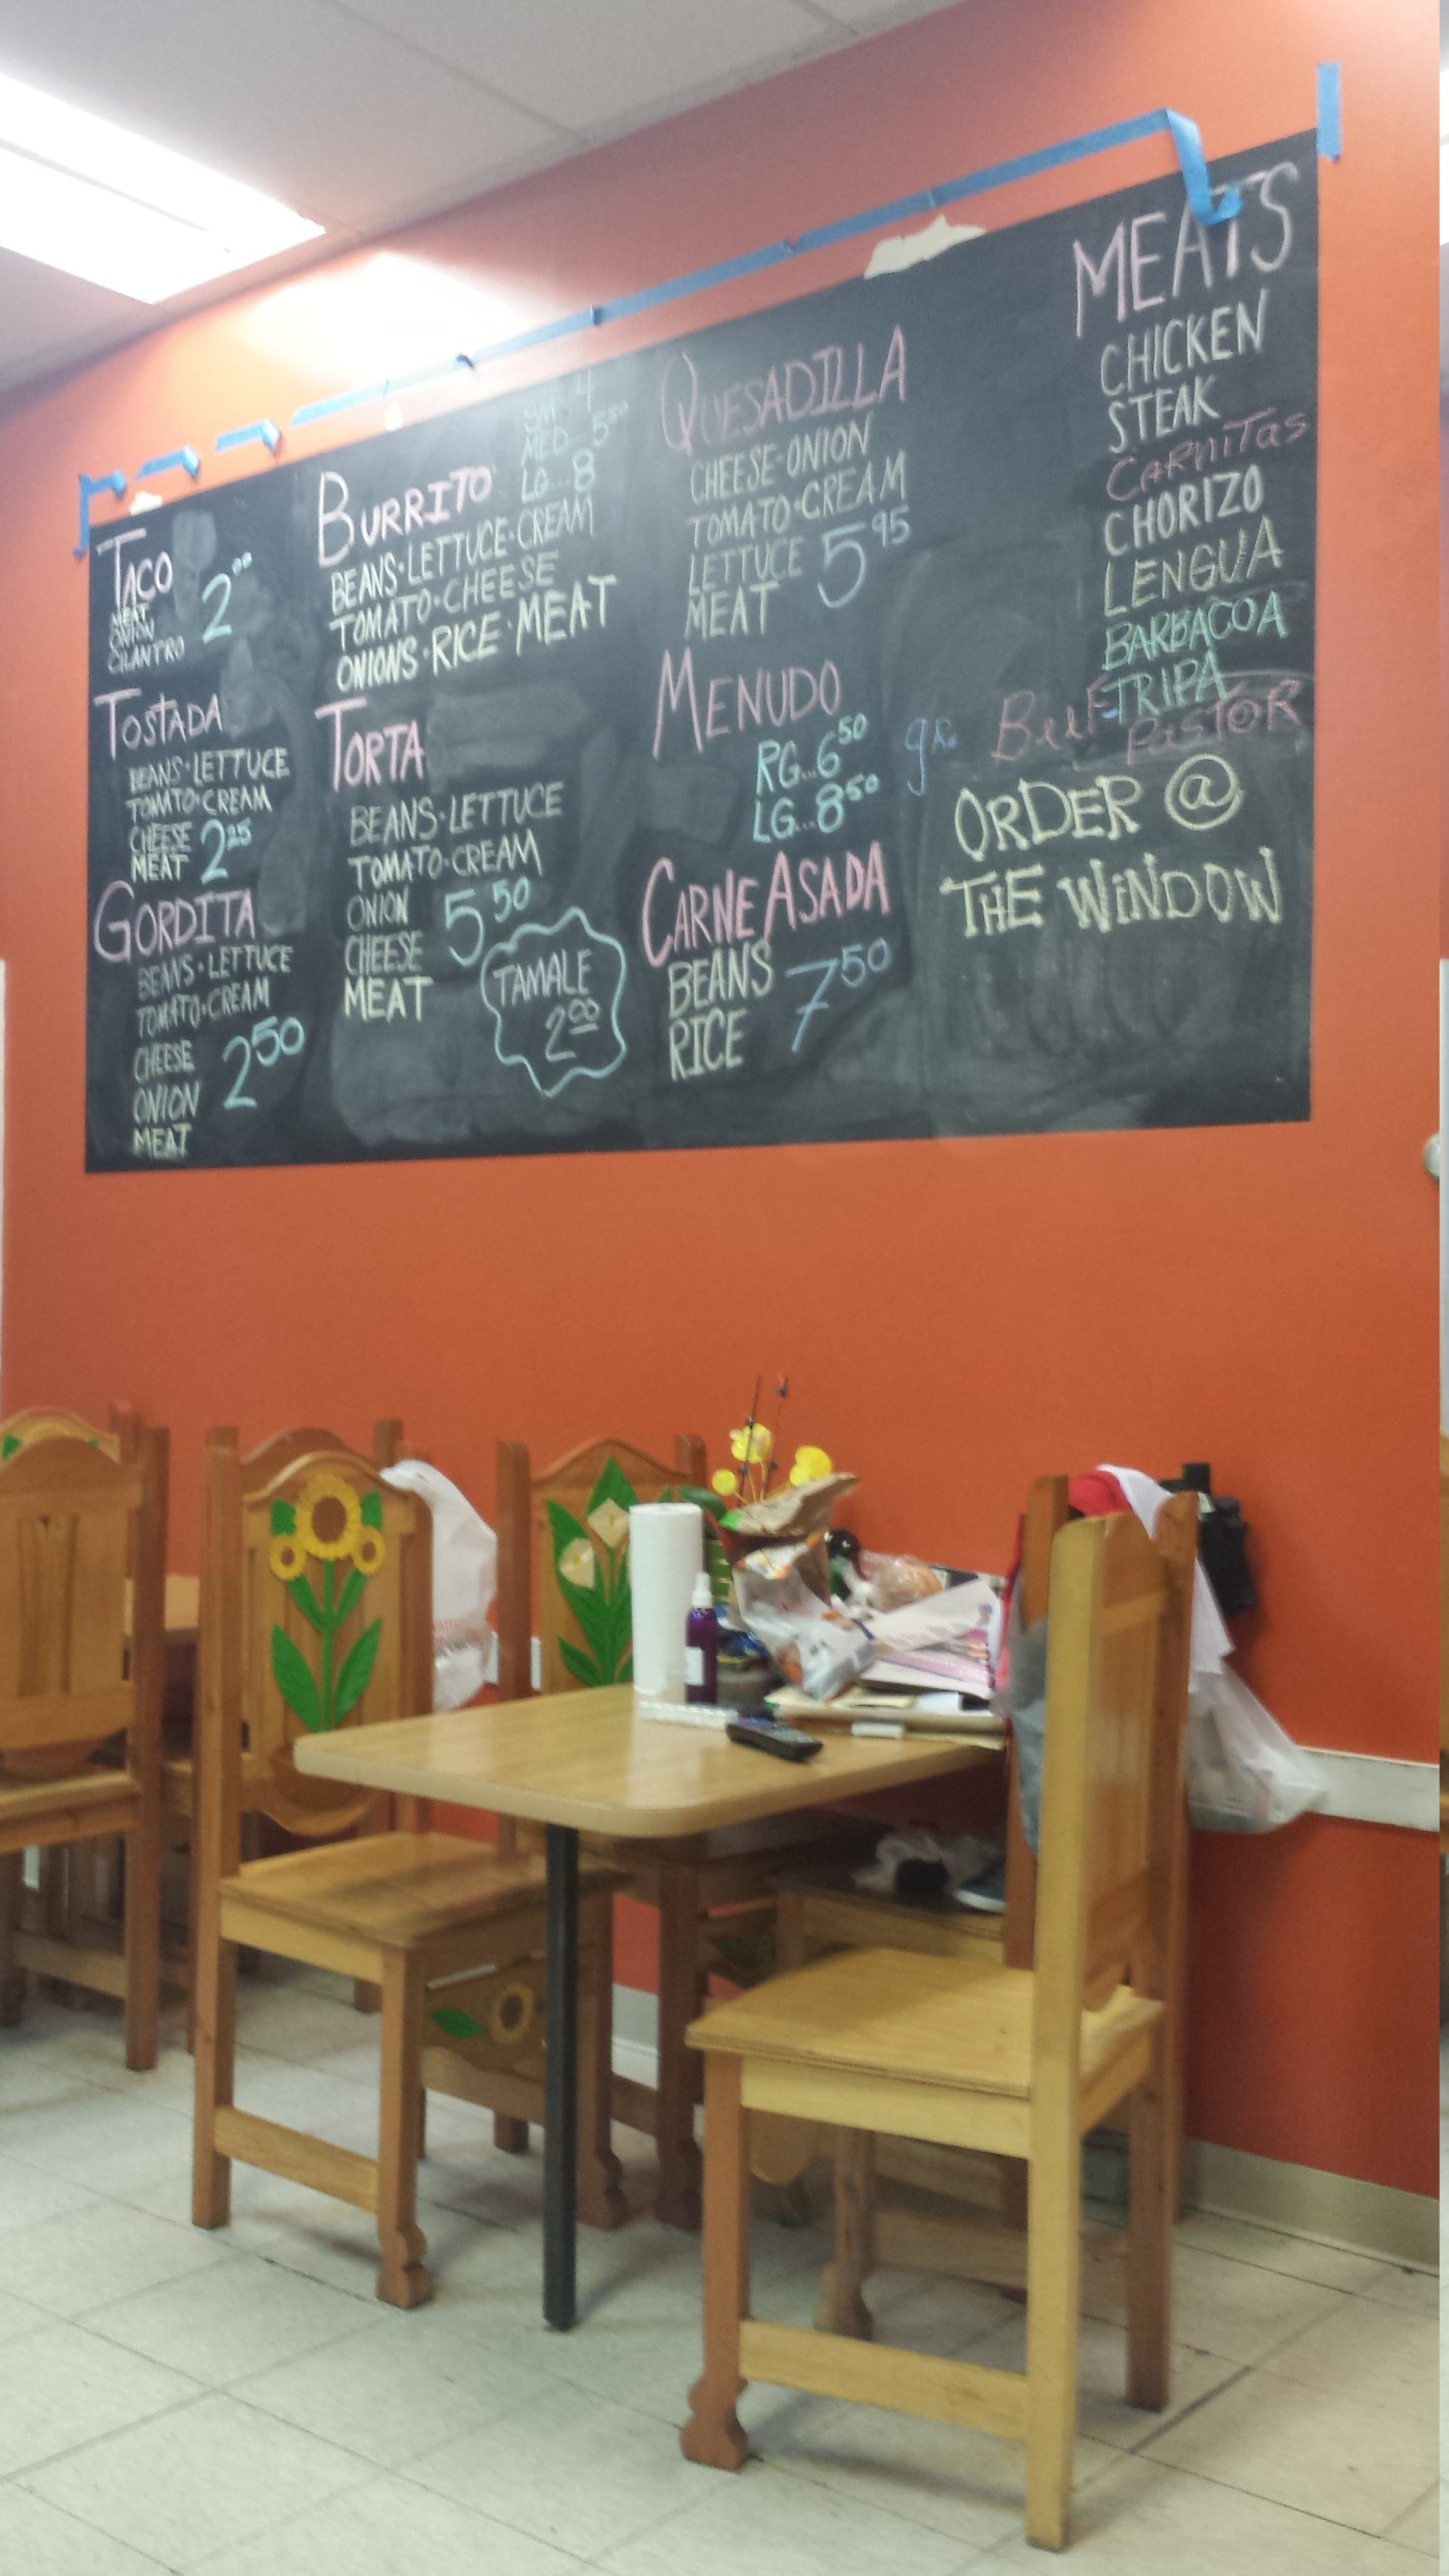 TACO
2 00
MEAT
ONION
CILANTRO
TOSTADA
BEANS·LETTUCE
TOMATO·CREAM
CHEESE
MEAT 2 25
GORDITA
BEANS·LETTUCE
TOMATO·CREAM
CHEESE
ONION
MEAT
2 50
BURRITO
SM 4
MED 5 50
LG...8
BEANS·LETTUCE·CREAM
TOMATO·CHEESE
ONIONS·RICE·MEAT
TORTA
BEANS·LETTUCE
TOMATO·CREAM
ONION
CHEESE
MEAT
5 50
TAMALE
2 00
QUESADILLA
CHEESE·ONION
TOMATO·CREAM
LETTUCE
MEAT
5 95
MENUDO
RG...6 50
LG...8 50
CARNE ASADA
BEANS
RICE
7 50
MEATS
CHICKEN
STEAK
CARNITAS
CHORIZO
LENGUA
BARBACOA
TRIPA
PASTOR
ORDER @
THE WINDOW